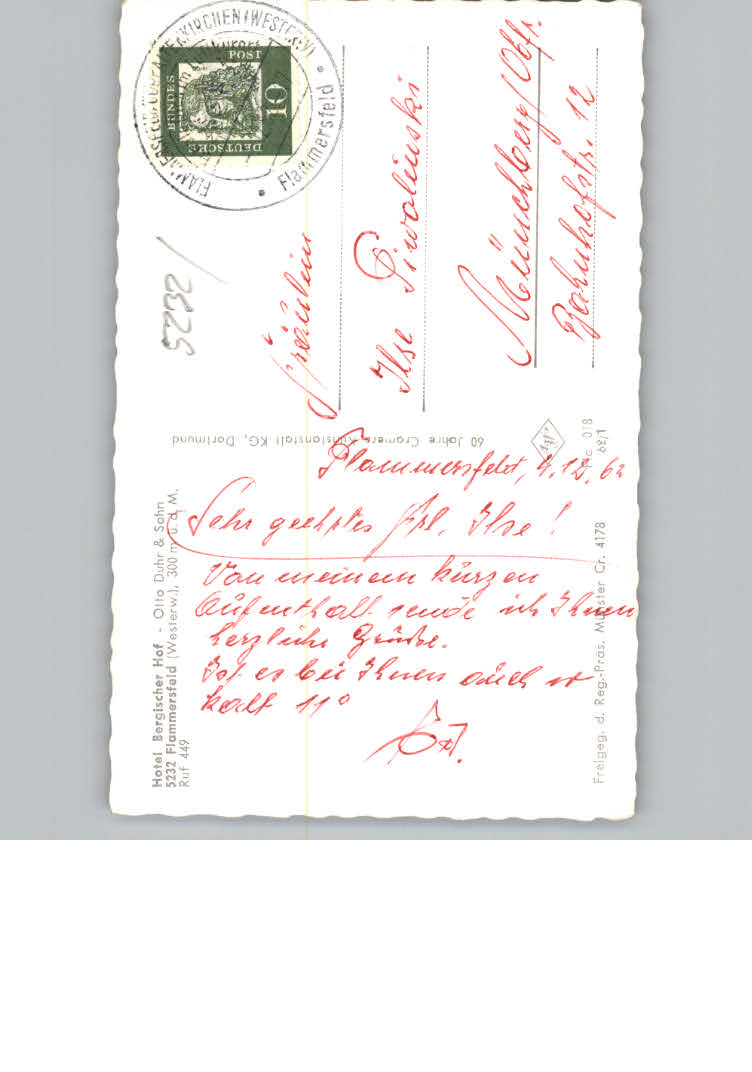 Hotel Bergischer Hof - Otto Duhr & Sohn
5232 Flammersfeld (Westerw.), 300 m ü. d. M.
Ruf 449
Flammersfeld, 9.12.62
Sehr geehrtes Frl. Ilse!
Von meinem kurzen
Aufenthalt sende ich Ihnen
herzliche Grüße.
Ist es bei Ihnen auch so
kalt 11°
60 Jahre Cramers Kunstanstalt KG, Dortmund
5232/
Fräulein
Ilse Piwolinski
Münchberg/Obfr.
Bahnhofstr. 12
DEUTSCHE
BUNDES
POST
10
KIRCHEN (WESTERW)
Flammersfeld
018
62/1
Freigeg. d. Reg.-Präs. Münster Cr. 4178